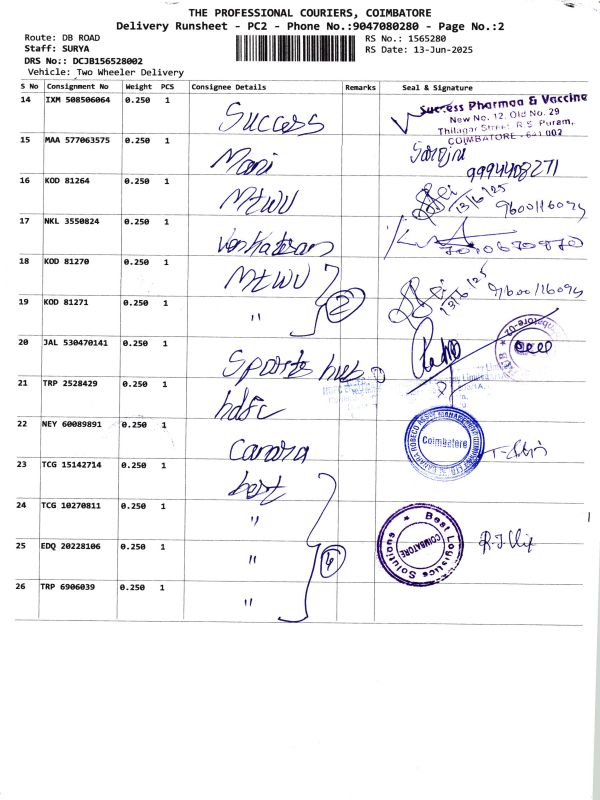 THE PROFESSIONAL COURIERS, COIMBATORE
Delivery Runsheet - PC2 - Phone No.:9047080280 - Page No.:2
Route: DB ROAD
Staff: SURYA
DRS No:: DCJB156528002
Vehicle: Two Wheeler Delivery
RS No.: 1565280
RS Date: 13-Jun-2025
S No Consignment No Weight PCS Consignee Details Remarks Seal & Signature
14 IXM 508506064 0.250 1 Success
Success Pharmaa & Vaccine
New No. 12, Old No. 29
Thilagar Street, R.S. Puram,
COIMBATORE - 641 002
15 MAA 577063575 0.250 1 Mani
9994408271
16 KOD 81264 0.250 1 MTWU 13/6/25
17 NKL 3550824 0.250 1 Venkatesan
18 KOD 81270 0.250 1 MTWU 13/6/25
19 KOD 81271 0.250 1 " 2
20 JAL 530470141 0.250 1 Sports hub
21 TRP 2528429 0.250 1 hdfc
22 NEY 60089891 0.250 1 Canara
CANARA ROBECO ASSET MANAGEMENT COMPANY LTD
Coimbatore
23 TCG 15142714 0.250 1 best
24 TCG 10270811 0.250 1 "
Best Logistics Solutions
COIMBATORE
25 EDQ 20228106 0.250 1 " 4
26 TRP 6906039 0.250 1 "